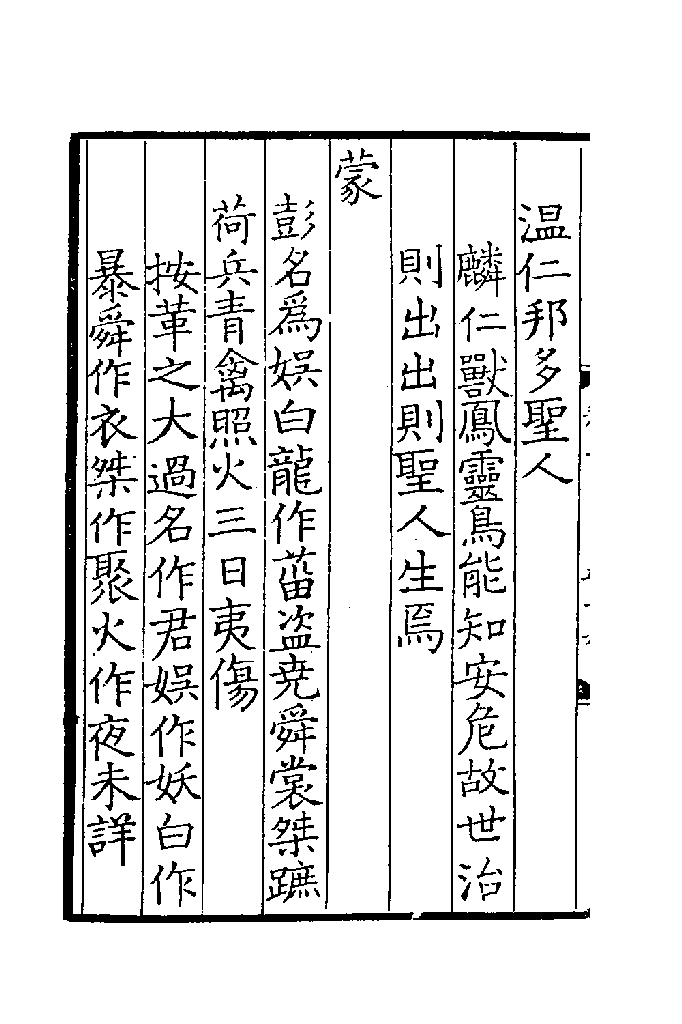 温仁邦多聖人
麟仁獸鳳靈鳥能知安危故世治
則出出則聖人生焉
蒙
彭名爲娱白龍作葘盗尭舜裳桀蹠
荷兵青禽照火三日夷傷
按革之大過名作君娱作妖白作
暴舜作衣桀作聚火作夜未詳